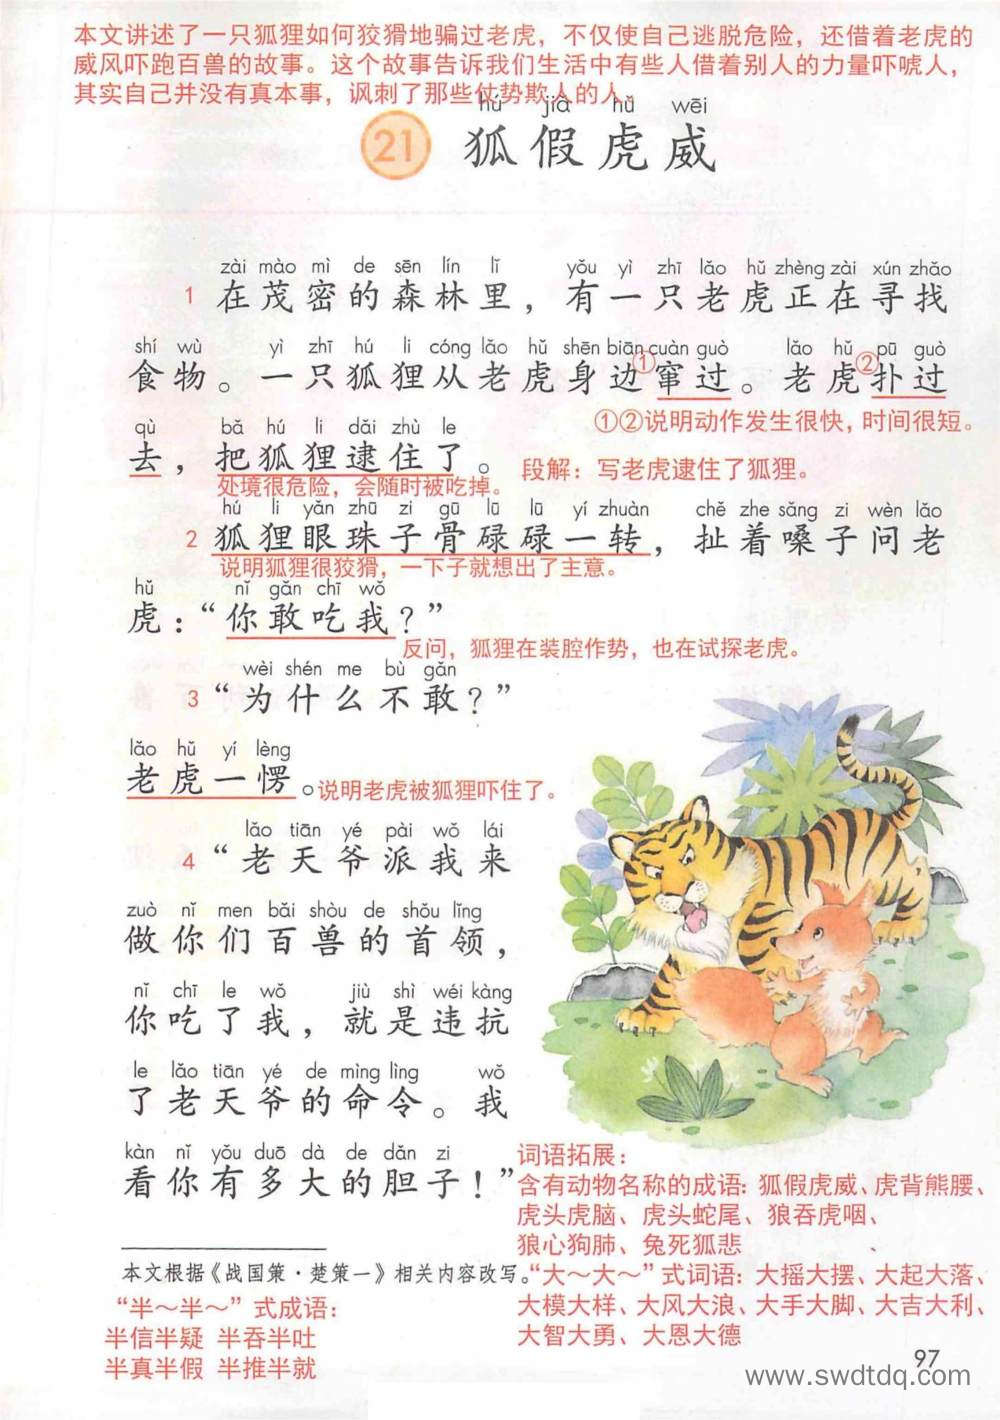 本文讲述了一只狐狸如何狡猾地骗过老虎，不仅使自己逃脱危险，还借着老虎的
威风吓跑百兽的故事。这个故事告诉我们生活中有些人借着别人的力量吓唬人，
其实自己并没有真本事，讽刺了那些仗势欺人的人。
hú jiǎ hǔ wēi
21 狐假虎威
zài mào mì de sēn lín lǐ yǒu yì zhī lǎo hǔ zhèng zài xún zhǎo
1 在茂密的森林里，有一只老虎正在寻找
shí wù yì zhī hú li cóng lǎo hǔ shēn biān cuàn guò lǎo hǔ pū guò
食物。一只狐狸从老虎身边①窜过。老虎②扑过
①②说明动作发生很快，时间很短。
qù bǎ hú li dǎi zhù le
去，把狐狸逮住了。 段解：写老虎逮住了狐狸。
处境很危险，会随时被吃掉。
hú li yǎn zhū zi gū lū lū yí zhuàn chě zhe sǎng zi wèn lǎo
2 狐狸眼珠子骨碌碌一转，扯着嗓子问老
说明狐狸很狡猾，一下子就想出了主意。
hǔ nǐ gǎn chī wǒ
虎：“你敢吃我？”
反问，狐狸在装腔作势，也在试探老虎。
wèi shén me bù gǎn
3 “为什么不敢？”
lǎo hǔ yí lèng
老虎一愣。说明老虎被狐狸吓住了。
lǎo tiān yé pài wǒ lái
4 “老天爷派我来
zuò nǐ men bǎi shòu de shǒu lǐng
做你们百兽的首领，
nǐ chī le wǒ jiù shì wéi kàng
你吃了我，就是违抗
le lǎo tiān yé de mìng lìng wǒ
了老天爷的命令。我
kàn nǐ yǒu duō dà de dǎn zi
看你有多大的胆子！”
词语拓展：
含有动物名称的成语：狐假虎威、虎背熊腰、
虎头虎脑、虎头蛇尾、狼吞虎咽、
狼心狗肺、兔死狐悲
本文根据《战国策·楚策一》相关内容改写。
“大～大～”式词语：大摇大摆、大起大落、
大模大样、大风大浪、大手大脚、大吉大利、
大智大勇、大恩大德
“半～半～”式成语：
半信半疑 半吞半吐
半真半假 半推半就
97
www.swdtdq.com